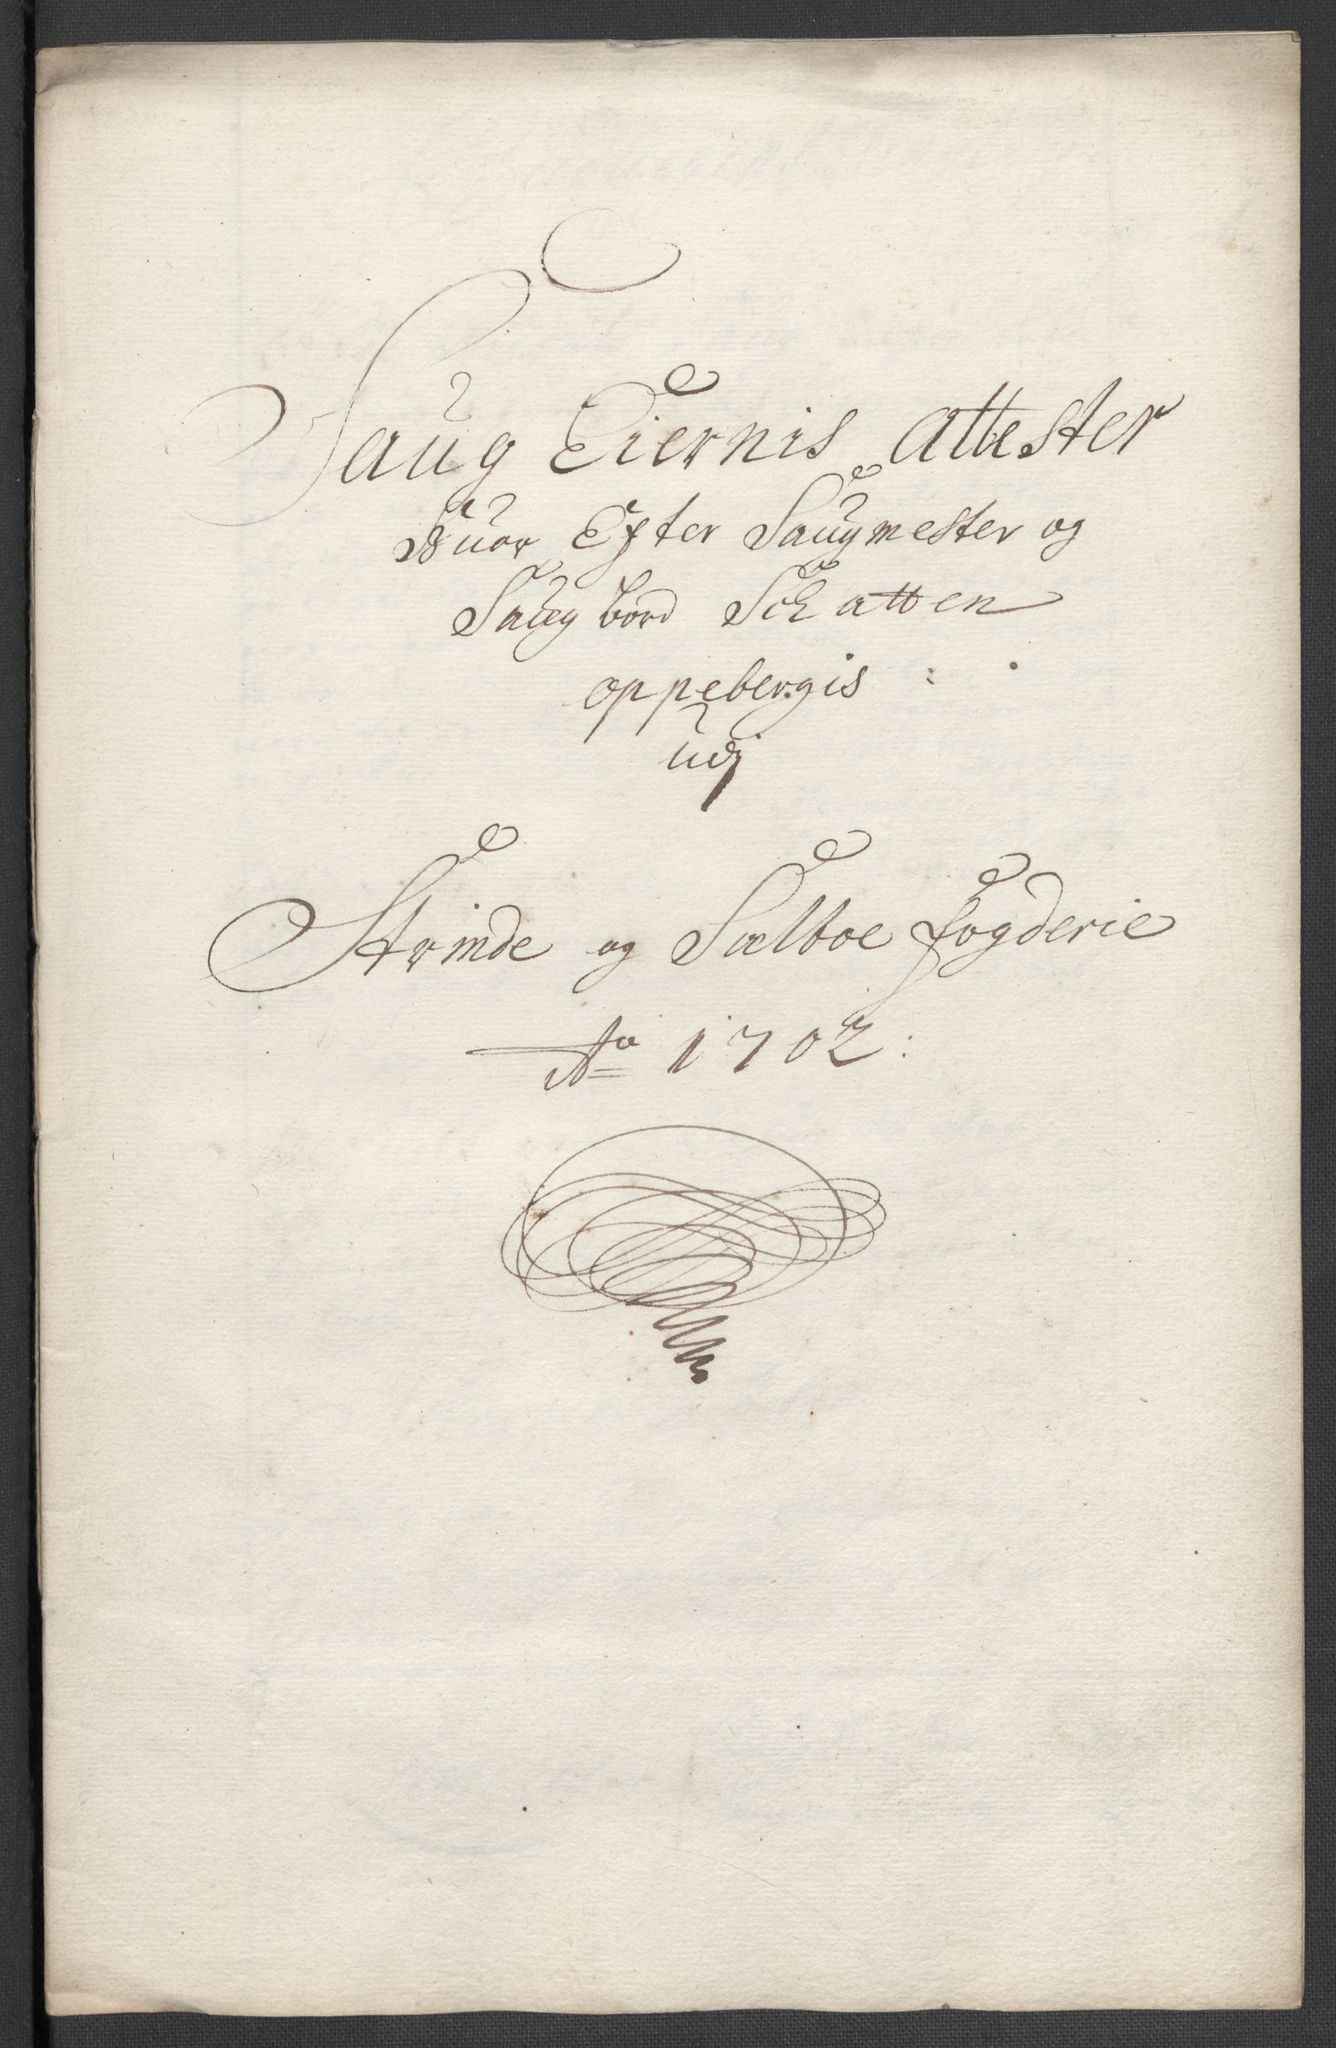 Saug Eiernis Attester
Huor Efter Saugmester og
Saugbord Schatten
oppebergis
udj
Strinde og Sælboe fogderie
Ao 1702: